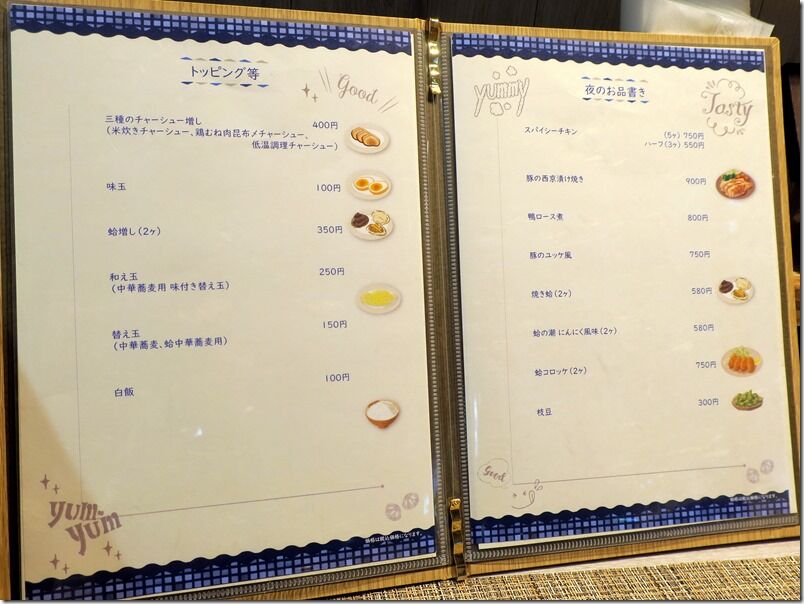 トッピング等
Good
三種のチャーシュー増し 400円
(米炊きチャーシュー、鶏むね肉昆布〆チャーシュー、
低温調理チャーシュー)
味玉 100円
蛤増し(2ヶ) 350円
和え玉 250円
(中華蕎麦用 味付き替え玉)
替え玉 150円
(中華蕎麦、蛤中華蕎麦用)
白飯 100円
yum-
yum
価格は税込価格になります。
yummy
夜のお品書き
Tasty
スパイシーチキン (5ヶ) 750円
ハーフ(3ヶ) 550円
豚の西京漬け焼き 900円
鴨ロース煮 800円
豚のユッケ風 750円
焼き蛤(2ヶ) 580円
蛤の潮 にんにく風味(2ヶ) 580円
蛤コロッケ(2ヶ) 750円
枝豆 300円
Good
価格は税込価格になります。